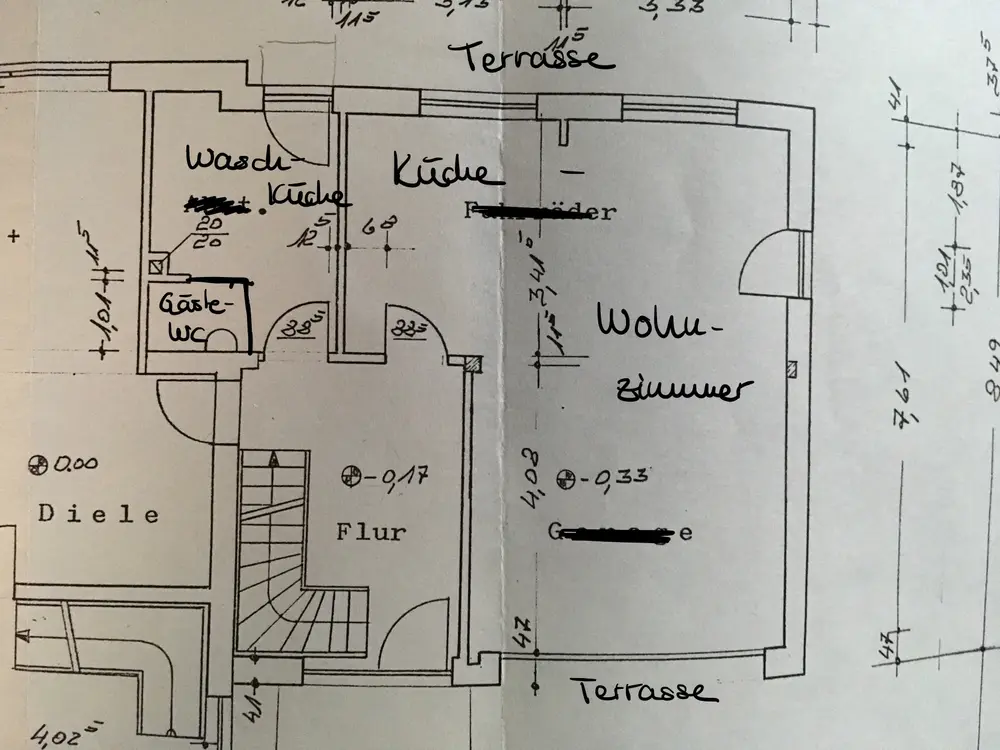 11⁵
3,33
11⁵
Terrasse
37⁵
41
Wasch-
Küche
Küche
20
20
12⁵
68
1,87
3,41⁵
1,01
2,35
11⁵
1,01
Gäste-
WC
88⁵
88⁵
11⁵
Wohn-
zimmer
7,61
8 49
0.00
-0,17
4,08
-0,33
Diele
Flur
47
47
41
Terrasse
4,02⁵